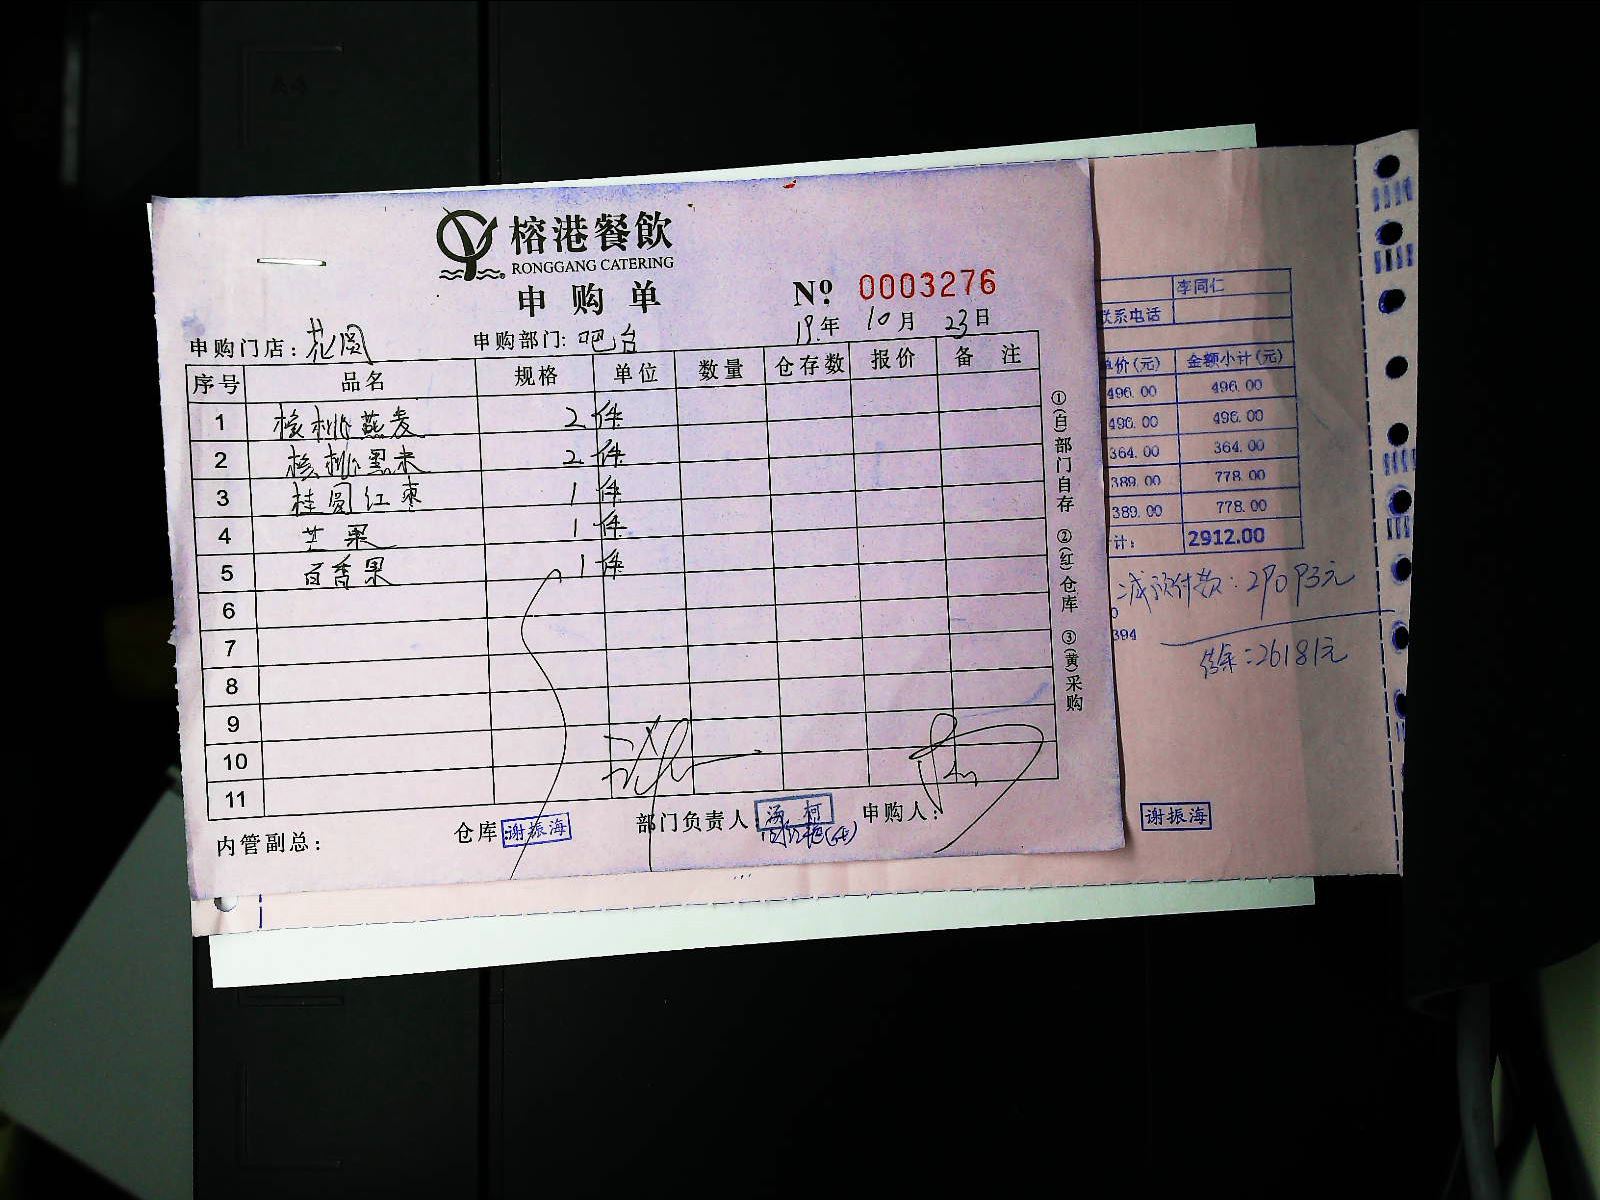 榕港餐飲
RONGGANG CATERING
申购单
Nº 0003276
19年 10月 23日
申购门店：花园 申购部门：吧台
序号 品名 规格 单位 数量 仓存数 报价 备注
1 核桃燕麦 2 件
2 核桃黑米 2 件
3 桂圆红枣 1 件
4 芒果 1 件
5 百香果 1 件
6
7
8
9
10
11
①(白)部门自存 ②(红)仓库 ③(黄)采购
内管副总： 仓库：谢振海 部门负责人 汤柯 申购人：
李同仁
联系电话
单价(元) 金额小计(元)
496.00 496.00
496.00 496.00
364.00 364.00
389.00 778.00
389.00 778.00
计： 2912.00
减预付款：29093元
0
394
余：26181元
谢振海